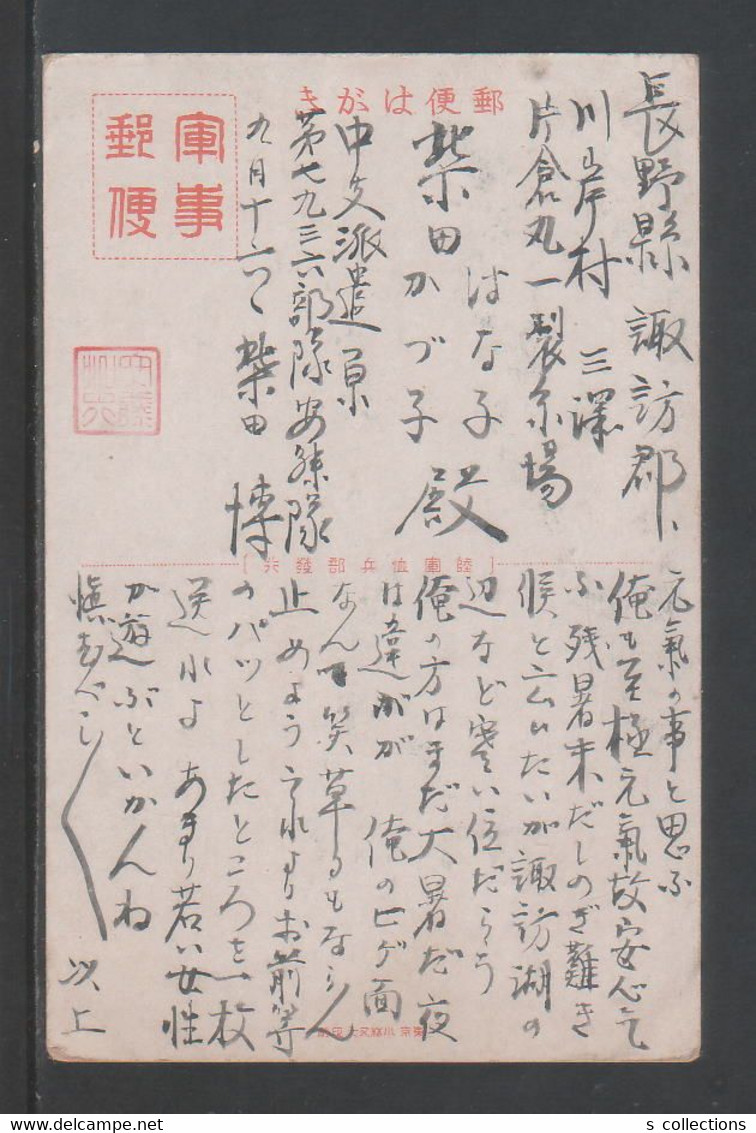 郵便はがき
軍事
郵便
長野縣諏訪郡、
川岸村 三澤
片倉丸一製糸場
柴田 はな子
かづ子 殿
中支派遣
第七九三六部隊安藤隊
九月十六日 柴田 博
[陸軍恤兵部發行]
元氣の事と思ふ
俺も至極元氣故安心して
残暑未だしのぎ難き
候と云ひたいが諏訪湖の
辺など寒い位だらう
俺の方はまだ大暑だ夜
は違ふが 俺のヒゲ面
なんて笑草にもならん
止めよう それよりお前等
のパツとしたところを一枚
送れよ あまり若い女性
が遊ぶといかんね
慎むべし
以上